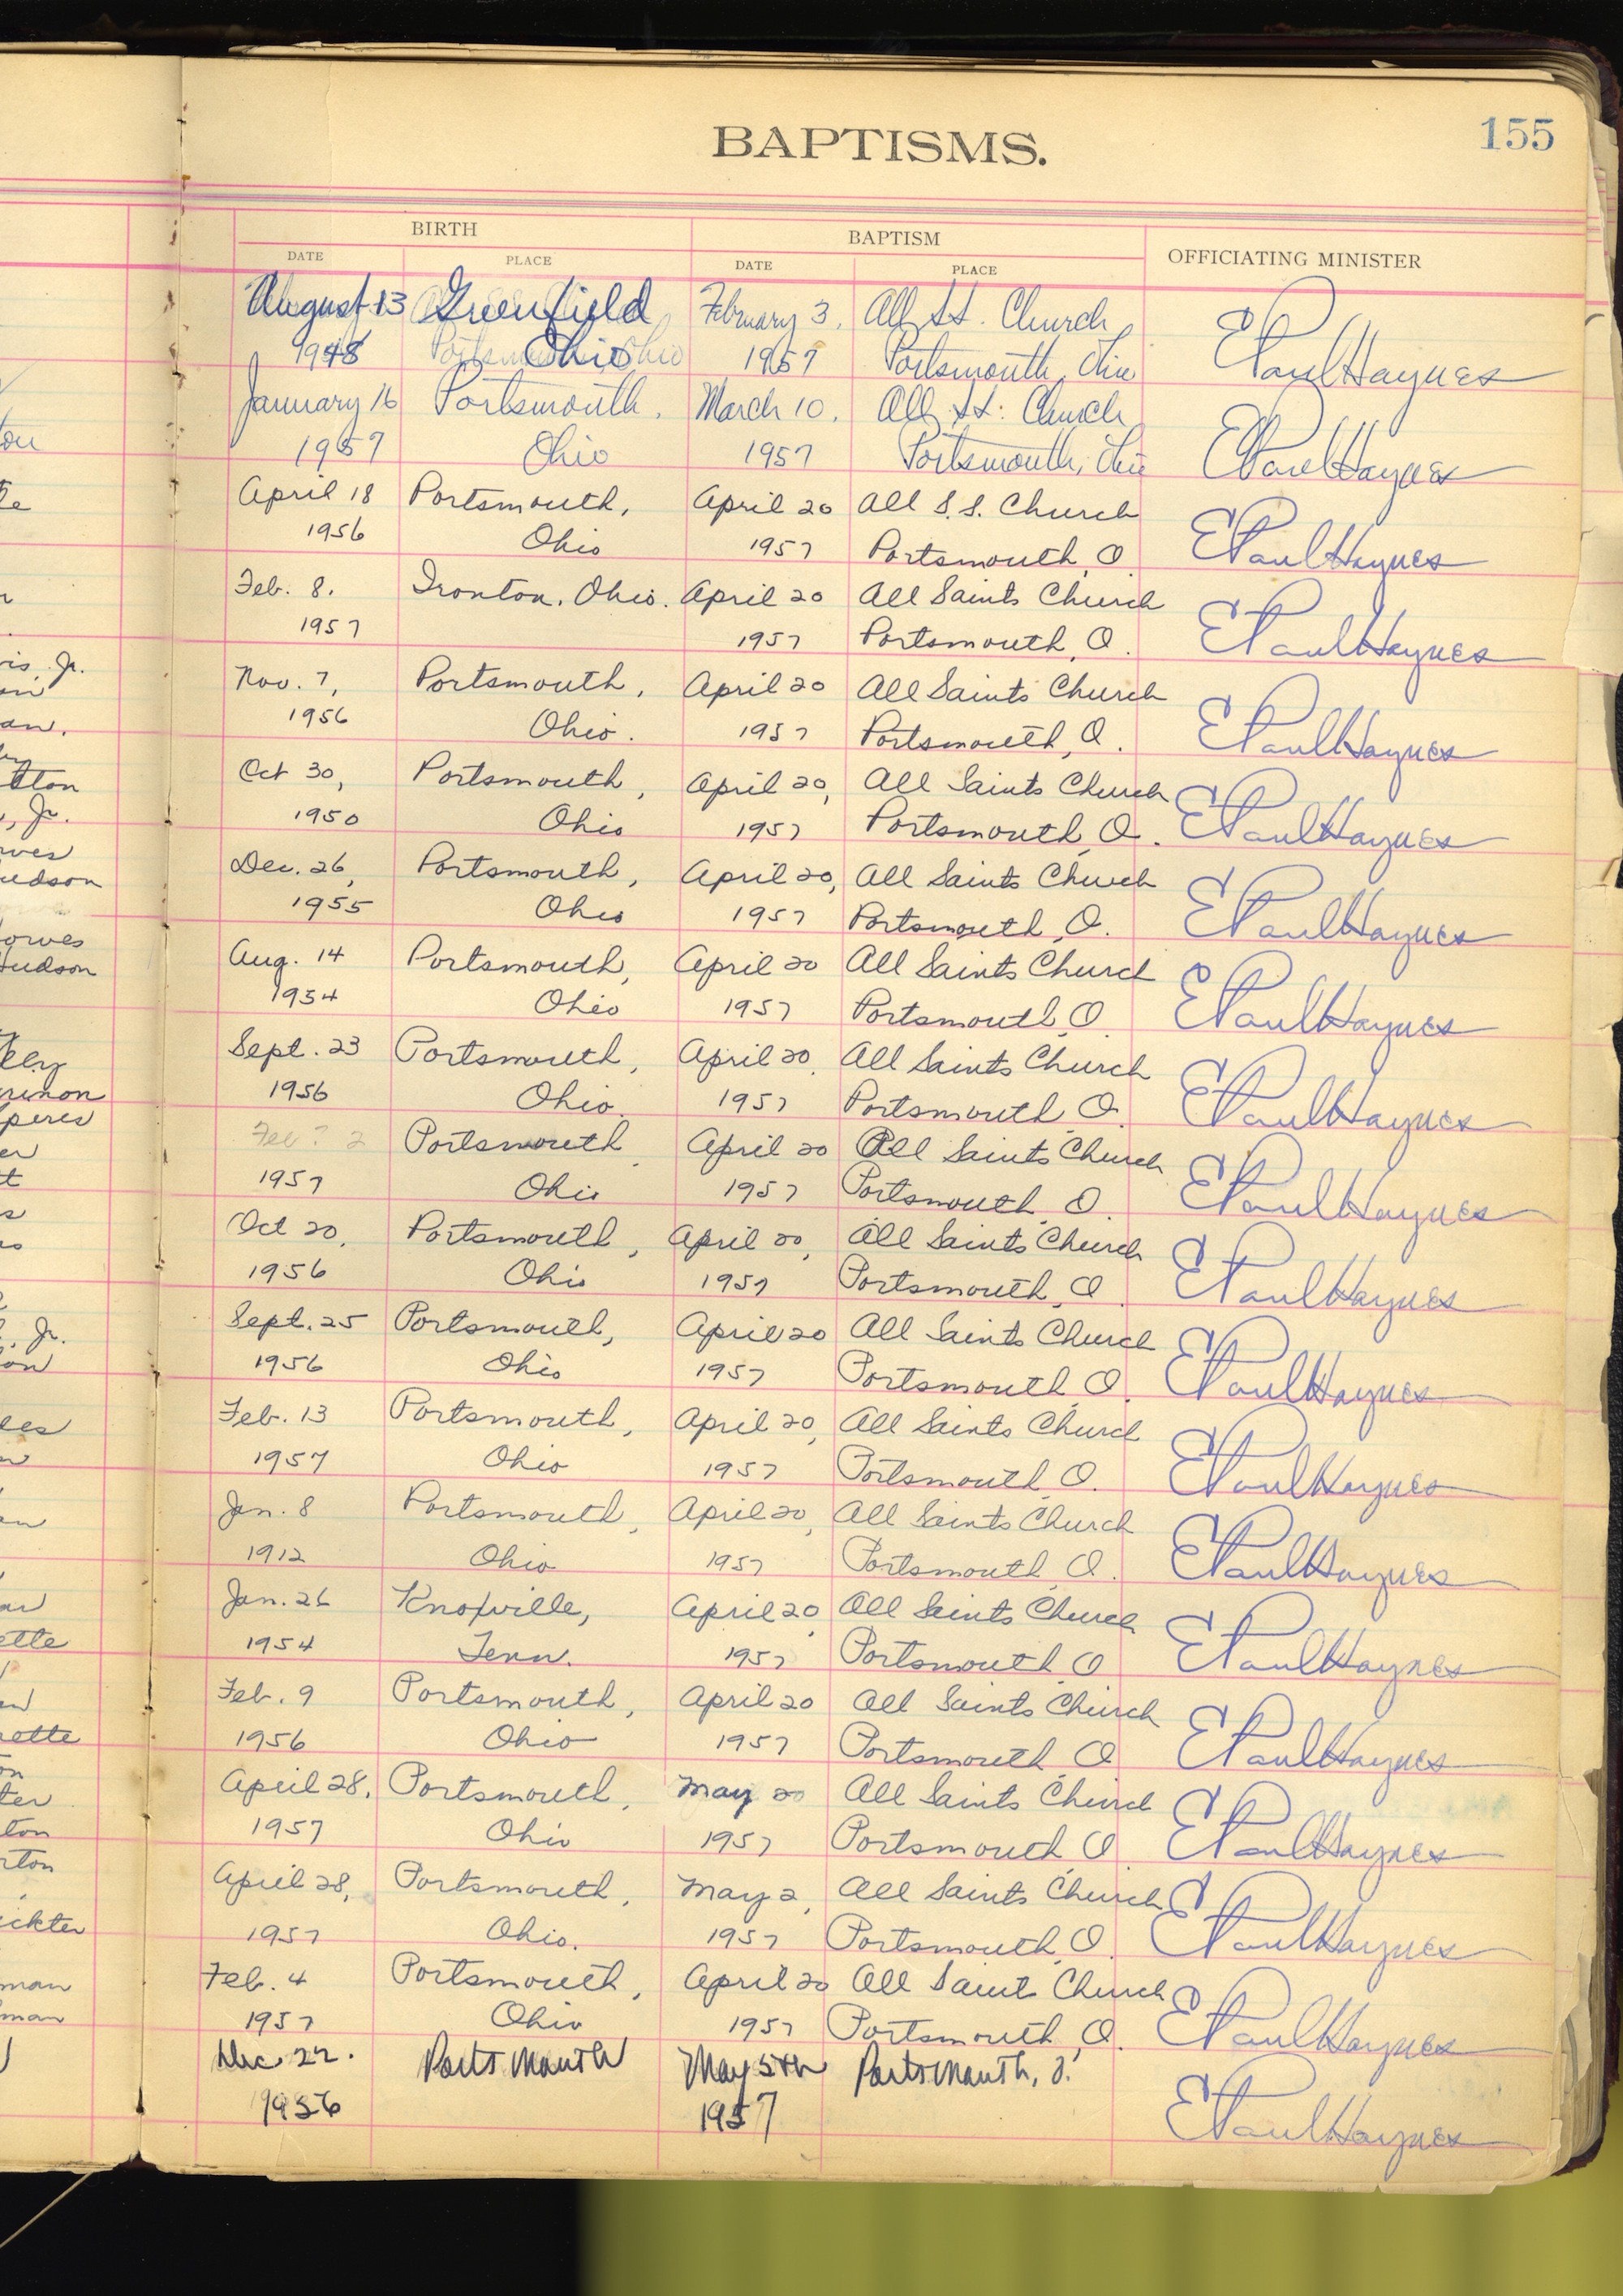 155
BAPTISMS.
BIRTH BAPTISM OFFICIATING MINISTER
DATE PLACE DATE PLACE
August 13 Greenfield February 3, All SS. Church
1948 Ohio 1957 Portsmouth, Ohio E Paul Haynes
January 16 Portsmouth, March 10, All SS. Church
1957 Ohio 1957 Portsmouth, Ohio E Paul Haynes
April 18 Portsmouth, April 20 All S.S. Church
1956 Ohio 1957 Portsmouth, O. E Paul Haynes
Feb. 8. Ironton, Ohio. April 20 All Saints Church
1957 1957 Portsmouth, O. E Paul Haynes
Nov. 7, Portsmouth, April 20 All Saints Church
1956 Ohio. 1957 Portsmouth, O. E Paul Haynes
Oct 30, Portsmouth, April 20, All Saints Church
1950 Ohio 1957 Portsmouth, O. E Paul Haynes
Dec. 26, Portsmouth, April 20, All Saints Church
1955 Ohio 1957 Portsmouth, O. E Paul Haynes
Aug. 14 Portsmouth, April 20 All Saints Church
1954 Ohio 1957 Portsmouth, O. E Paul Haynes
Sept. 23 Portsmouth, April 20, All Saints Church
1956 Ohio. 1957 Portsmouth, O. E Paul Haynes
Feb ? 2 Portsmouth, April 20 All Saints Church
1957 Ohio 1957 Portsmouth, O. E Paul Haynes
Oct 20, Portsmouth, April 20, All Saints Church
1956 Ohio 1957 Portsmouth, O. E Paul Haynes
Sept. 25 Portsmouth, April 20 All Saints Church
1956 Ohio 1957 Portsmouth, O. E Paul Haynes
Feb. 13 Portsmouth, April 20, All Saints Church
1957 Ohio 1957 Portsmouth, O. E Paul Haynes
Jan. 8 Portsmouth, April 20, All Saints Church
1912 Ohio 1957 Portsmouth, O. E Paul Haynes
Jan. 26 Knoxville, April 20, All Saints Church
1954 Tenn. 1957 Portsmouth, O E Paul Haynes
Feb. 9 Portsmouth, April 20 All Saints Church
1956 Ohio 1957 Portsmouth, O E Paul Haynes
April 28, Portsmouth, May 20 All Saints Church
1957 Ohio 1957 Portsmouth, O. E Paul Haynes
April 28, Portsmouth, May 2, All Saints Church
1957 Ohio. 1957 Portsmouth, O. E Paul Haynes
Feb. 4 Portsmouth, April 20 All Saint Church
1957 Ohio 1957 Portsmouth, O. E Paul Haynes
Dec 22. Portsmouth May 5th Portsmouth, O.
1956 1957 E Paul Haynes